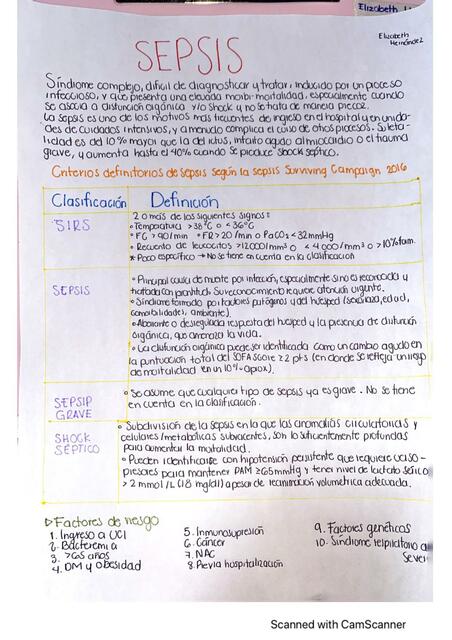 Elizabeth
Elizabeth
Hernández
SEPSIS
Síndrome complejo, difícil de diagnosticar y tratar, inducido por un proceso
infeccioso, y que presenta una elevada morbi-mortalidad, especialmente cuando
se asocia a disfunción orgánica y/o shock y no se trata de manera precoz.
La sepsis es uno de los motivos más frecuentes de ingreso en el hospital y en unida-
des de cuidados intensivos, y a menudo complica el curso de otros procesos. Su leta-
lidad es del 10% mayor que la del ictus, infarto agudo al miocardio o el trauma
grave, y aumenta hasta el 40% cuando se produce shock séptico.
Criterios definitorios de sepsis según la sepsis Surviving Campaign 2016
Clasificación Definición
SIRS
2 o más de los siguientes signos:
• Temperatura >38°C o <36°C
• FC >90/min • FR >20/min o PaCO2 <32mmHg
• Recuento de leucocitos >12000/mm3 o <4000/mm3 o >10%
* Poco específico → No se tiene en cuenta en la clasificación
SEPSIS
• Principal causa de muerte por infección, especialmente si no es reconocida y
tratada con prontitud. Su reconocimiento requiere atención urgente.
• Síndrome formado por factores patógenos y del huésped (sexo, raza, edad,
comorbilidades, ambiente).
• Aberrante o desregulada respuesta del huésped y la presencia de disfunción
orgánica, que amenaza la vida.
• La disfunción orgánica puede ser identificada como un cambio agudo en
la puntuación total del SOFA score ≥2 pts (en donde se refleja un riesgo
de mortalidad en un 10% aprox).
SEPSIP
GRAVE
• Se asume que cualquier tipo de sepsis ya es grave. No se tiene
en cuenta en la clasificación.
SHOCK
SÉPTICO
• Subdivisión de la sepsis en la que las anomalías circulatorias y
celulares/metabólicas subyacentes, son lo suficientemente profundas
para aumentar la mortalidad.
• Pueden identificarse con hipotensión persistente que requiere vaso-
presores para mantener PAM ≥65mmHg y tener nivel de lactato sérico
> 2 mmol/L (18 mg/dl) a pesar de reanimación volumétrica adecuada.
▷ Factores de riesgo
1. Ingreso a UCI
2. Bacteremia
3. >65 años
4. DM y obesidad
5. Inmunosupresión
6. Cáncer
7. NAC
8. Previa hospitalización
9. Factores genéticas
10. Síndrome respiratorio a
Sever
Scanned with CamScanner